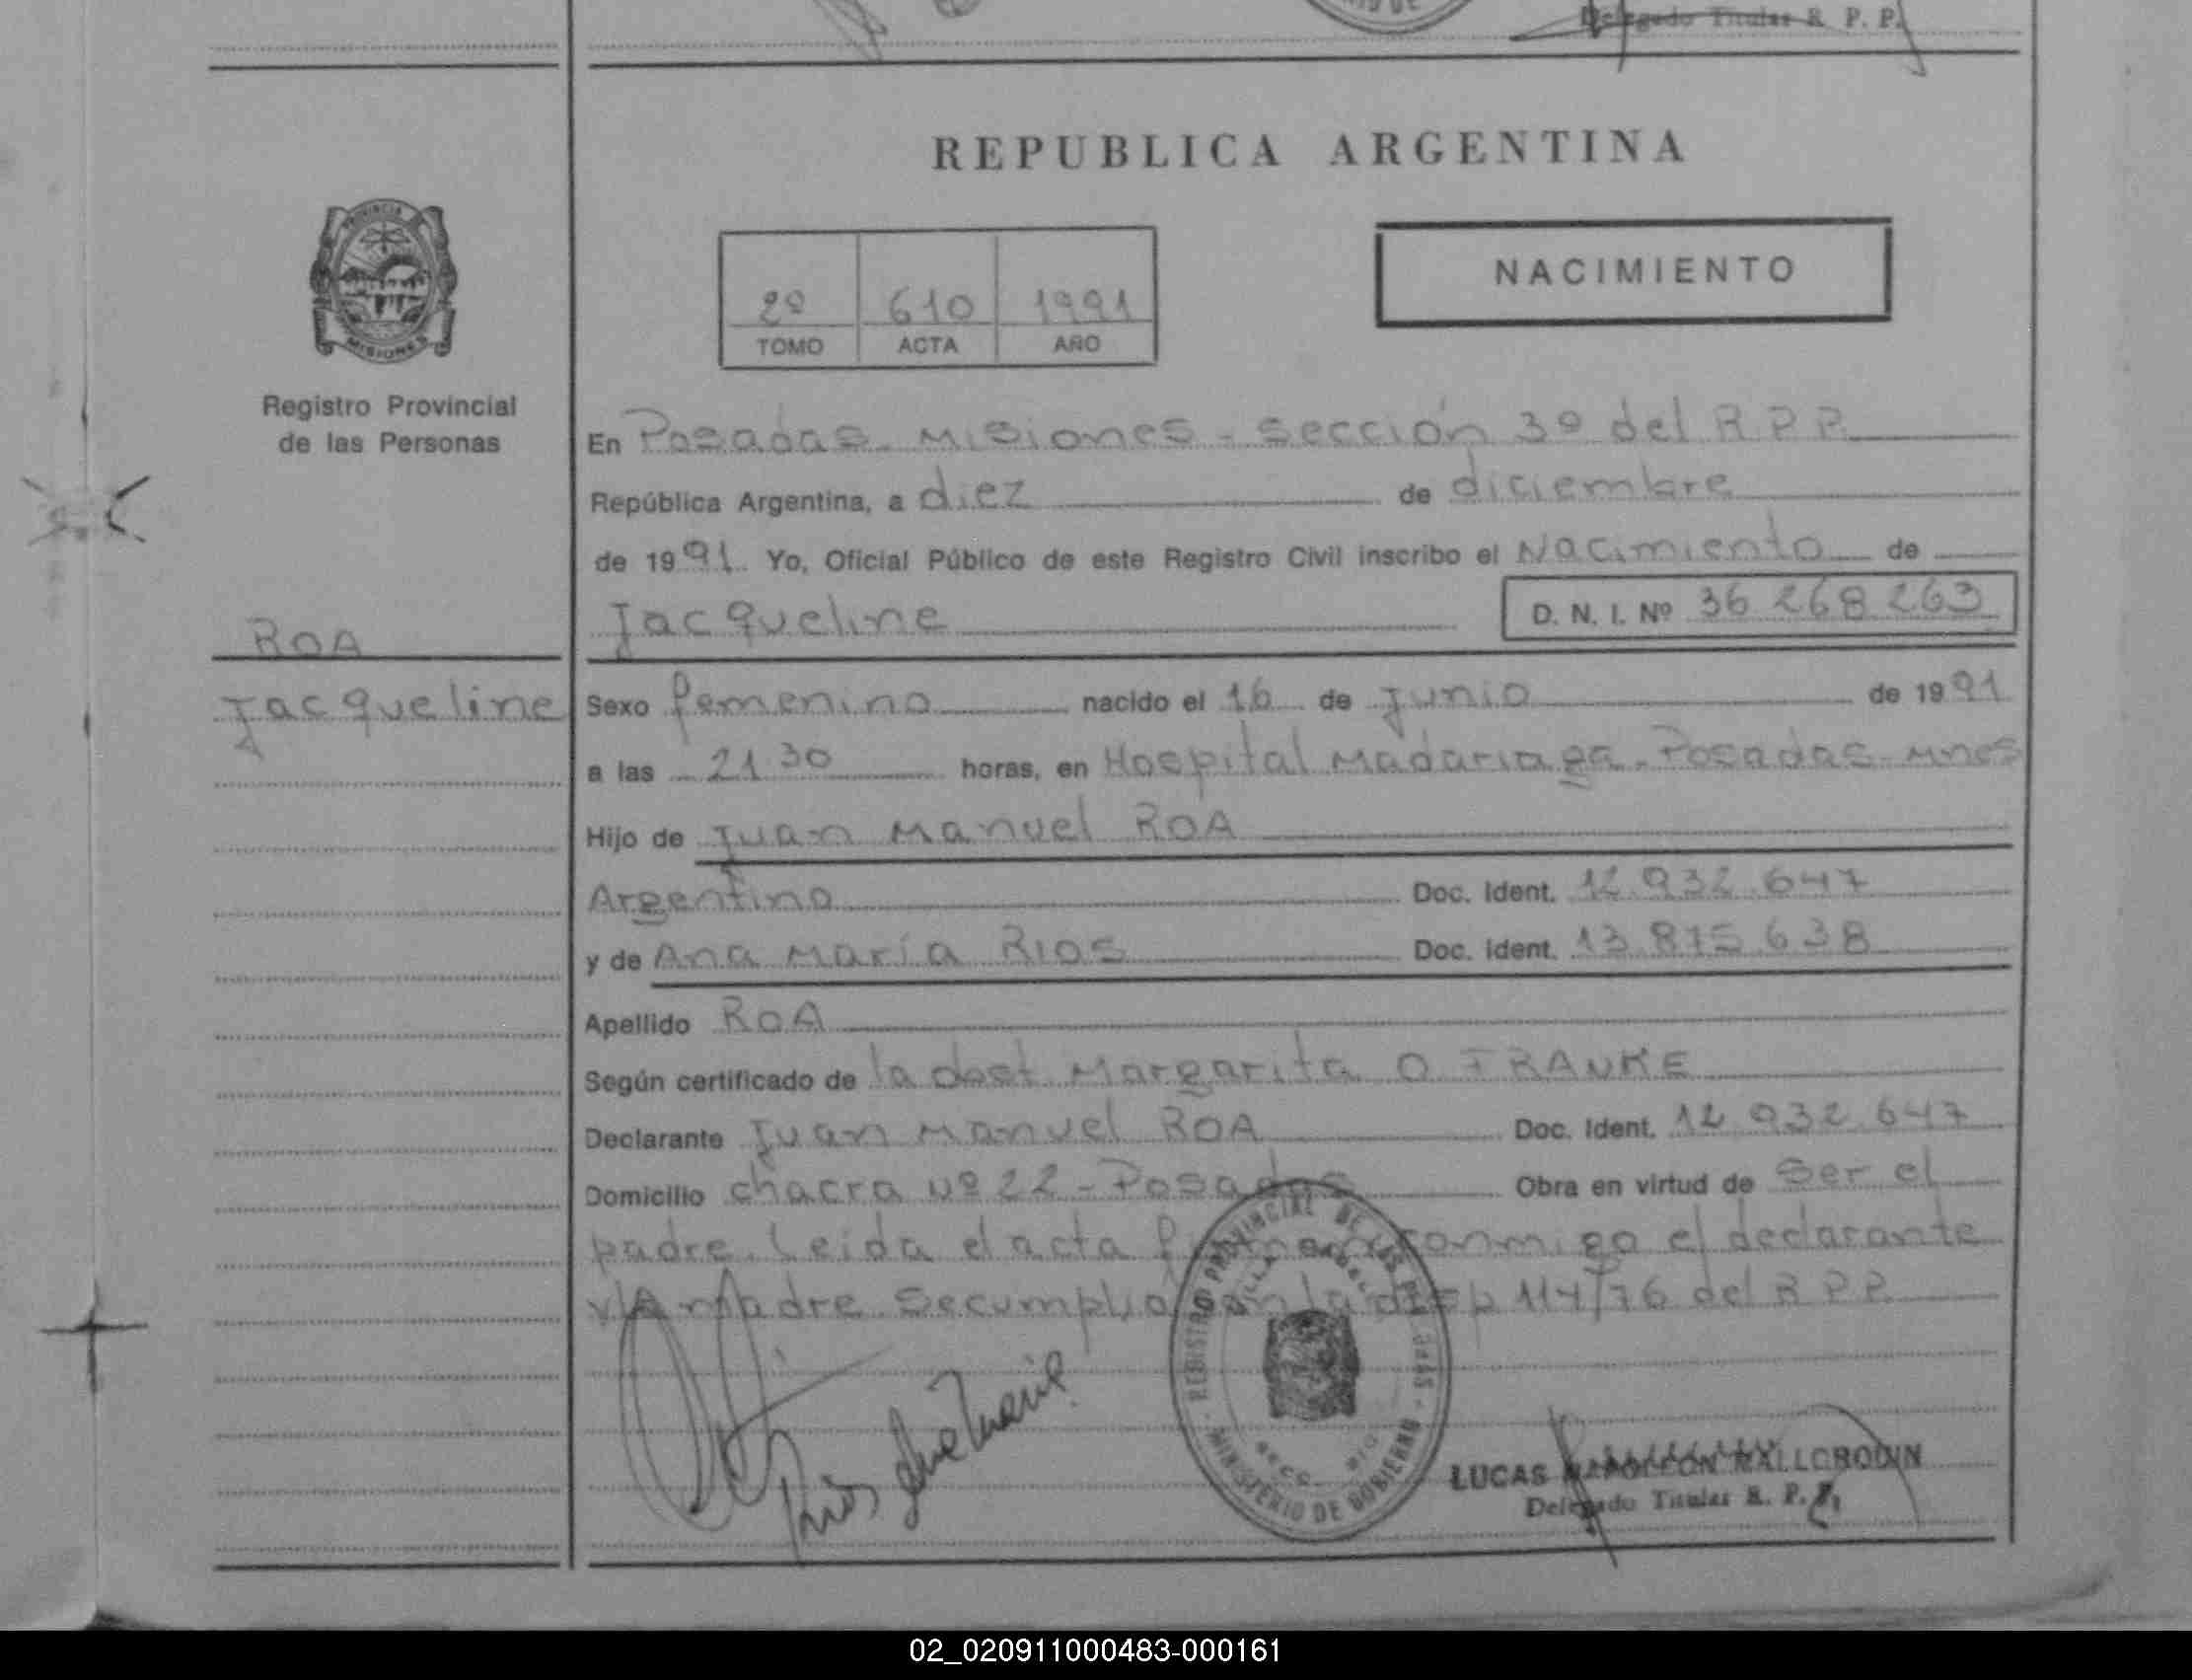 Delegado Titular R. P. P.
REPUBLICA ARGENTINA
PROVINCIA
MISIONES
NACIMIENTO
2º 610 1991
TOMO ACTA AÑO
Registro Provincial
de las Personas
En Posadas - Misiones - Sección 3º del R.P.P.
República Argentina, a diez de diciembre
de 1991. Yo, Oficial Público de este Registro Civil inscribo el Nacimiento de
Jacqueline D. N. I. Nº 36 268 263
ROA
Jacqueline
Sexo femenino nacido el 16 de junio de 1991
a las 21 30 horas, en Hospital Madariaga - Posadas - Mnes
Hijo de Juan Manuel ROA
Argentino Doc. Ident. 12.932.647
y de Ana María RIOS Doc. Ident. 13.875.638
Apellido ROA
Según certificado de la dost Margarita O FRANKE
Declarante Juan Manuel ROA Doc. Ident. 12 932 647
Domicilio chacra Nº 22 - Posadas Obra en virtud de Ser el
padre. Leida el acta firman conmigo el declarante
y la madre. Se cumplio con la disp 114/76 del R.P.P.
REGISTRO PROVINCIAL DE LAS PERSONAS
MINISTERIO DE GOBIERNO
Rios Ana Maria
LUCAS NAPOLEON MALLORQUIN
Delegado Titular R. P. P.
02_020911000483-000161